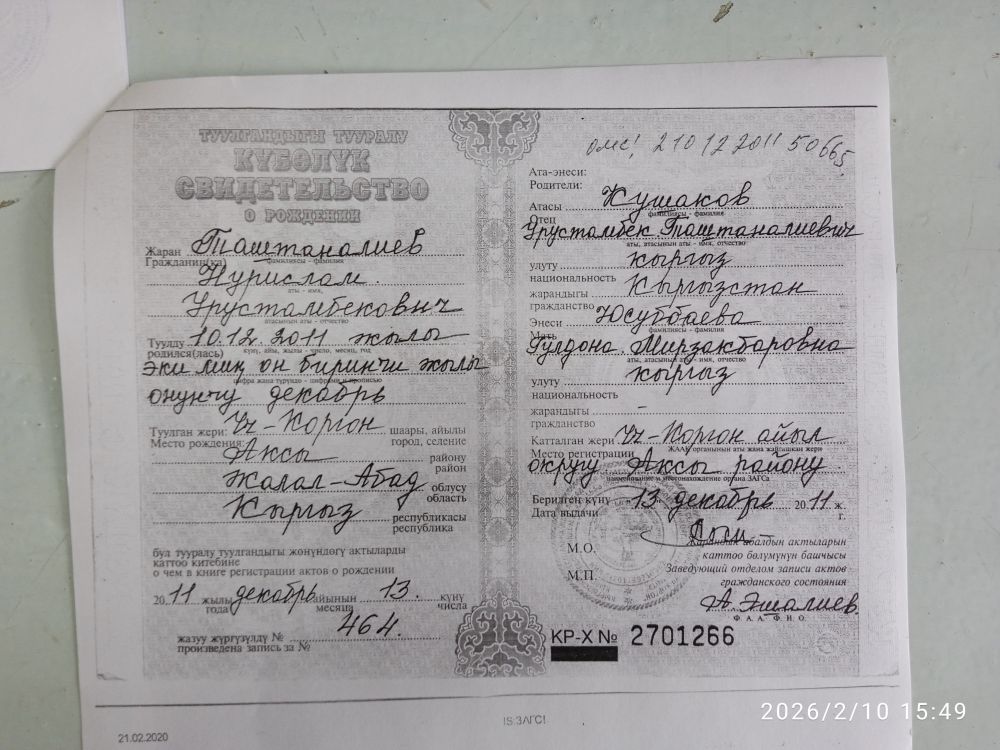 ТУУЛГАНДЫГЫ ТУУРАЛУ
КҮБӨЛҮК
СВИДЕТЕЛЬСТВО
О РОЖДЕНИИ
Жаран Гражданин(ка) Таштаналиев
фамилиясы - фамилия
Нурислам
аты - имя
Урустамбекович
атасынын аты - отчество
Туулду родился(лась) 10.12.2011 жылы
күнү, айы, жылы - число, месяц, год
эки миң он биринчи жылы
цифра жана түрүндө - цифрами и прописью
онунчу декабрь
Туулган жери: Место рождения: Үч-Коргон шаары, айылы город, селение
Аксы району район
Жалал-Абад облусу область
Кыргыз республикасы республика
бул тууралу туулгандыгы жөнүндөгү актыларды
каттоо китебине
о чем в книге регистрации актов о рождении
2011 жылы года декабрь айынын месяца 13. күнү числа
жазуу жүргүзүлдү № произведена запись за № 464.
омс! 210122011 50665
Ата-энеси:
Родители:
Атасы Отец Кушаков
фамилиясы - фамилия
Урустамбек Таштаналиевич
аты, атасынын аты - имя, отчество
улуту национальность кыргыз
жарандыгы гражданство Кыргызстан
Энеси Мать Юсупбаева
фамилиясы - фамилия
Гулдона Мирзакбаровна
аты, атасынын аты - имя, отчество
улуту национальность кыргыз
жарандыгы гражданство –
Катталган жери Место регистрации Үч-Коргон айыл
ЖААК органынын аты жана жайгашкан жери
округу Аксы району
наименование и местонахождение органа ЗАГСа
Берилген күнү Дата выдачи 13 декабрь 2011 ж г.
М.О.
М.П.
Жарандык абалдын актыларын
каттоо бөлүмүнүн башчысы
Заведующий отделом записи актов
гражданского состояния
А.Эшалиев.
Ф.А.А. Ф.И.О.
КР-Х № 2701266
21.02.2020
2026/2/10 15:49